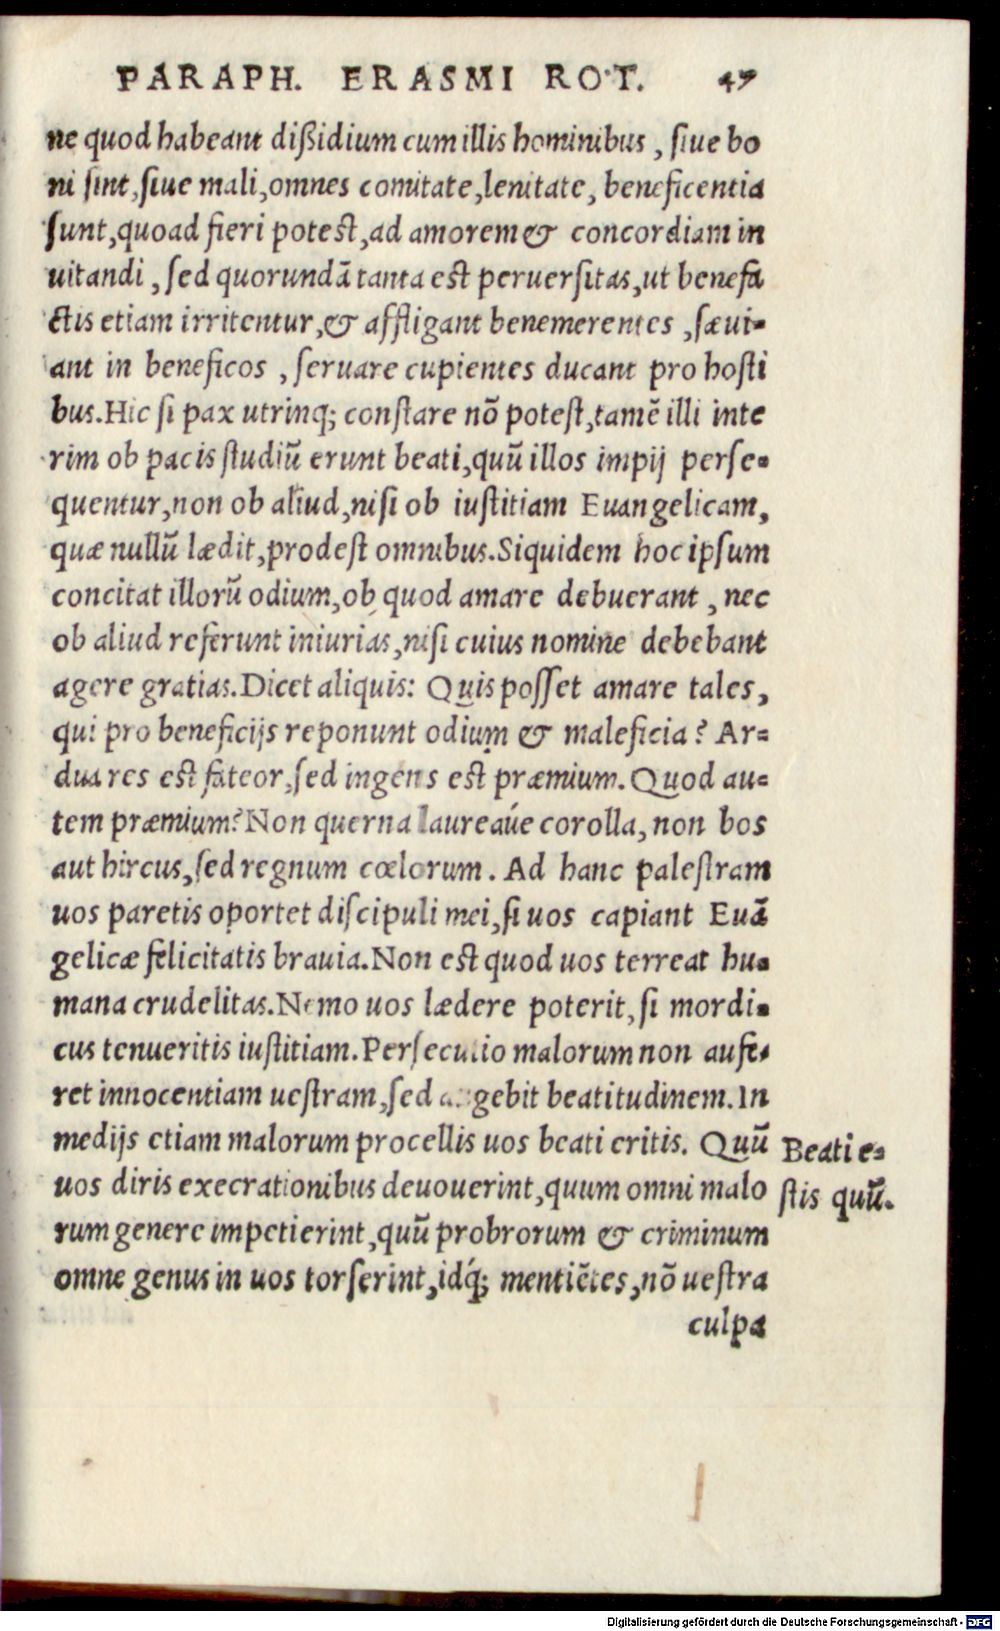 PARAPH. ERASMI RO·T. 47
ne quod habeant dißidium cum illis hominibus, ſiue bo
ni ſint, ſiue mali, omnes comitate, lenitate, beneficentia
ſunt, quoad fieri poteſt, ad amorem & concordiam in
uitandi, ſed quorundā tanta eſt peruerſitas, ut benefa
ctis etiam irritentur, & affligant benemerentes, ſæui-
ant in beneficos, ſeruare cupientes ducant pro hoſti
bus. Hic ſi pax utrinq; conſtare nō poteſt, tamē illi inte
rim ob pacis ſtudiū erunt beati, quū illos impij perſe-
quentur, non ob aliud, niſi ob iuſtitiam Euangelicam,
quæ nullū lædit, prodeſt omnibus. Siquidem hoc ipſum
concitat illorū odium, ob quod amare debuerant, nec
ob aliud referunt iniurias, niſi cuius nomine debebant
agere gratias. Dicet aliquis: Quis poſſet amare tales,
qui pro beneficijs reponunt odium & maleficia? Ar-
dua res eſt fateor, ſed ingens eſt præmium. Quod au-
tem præmium? Non querna laureáue corolla, non bos
aut hircus, ſed regnum cœlorum. Ad hanc paleſtram
uos paretis oportet diſcipuli mei, ſi uos capiant Euā
gelicæ felicitatis brauia. Non eſt quod uos terreat hu-
mana crudelitas. Nemo uos lædere poterit, ſi mordi-
cus tenueritis iuſtitiam. Perſecutio malorum non aufe-
ret innocentiam ueſtram, ſed augebit beatitudinem. In
medijs etiam malorum procellis uos beati eritis. Quū
uos diris execrationibus deuouerint, quum omni malo
rum genere impetierint, quū probrorum & criminum
omne genus in uos torſerint, idq́; mentiētes, nō ueſtra
culpa
Beati e-
ſtis quū.
Digitalisierung gefördert durch die Deutsche Forschungsgemeinschaft - DFG